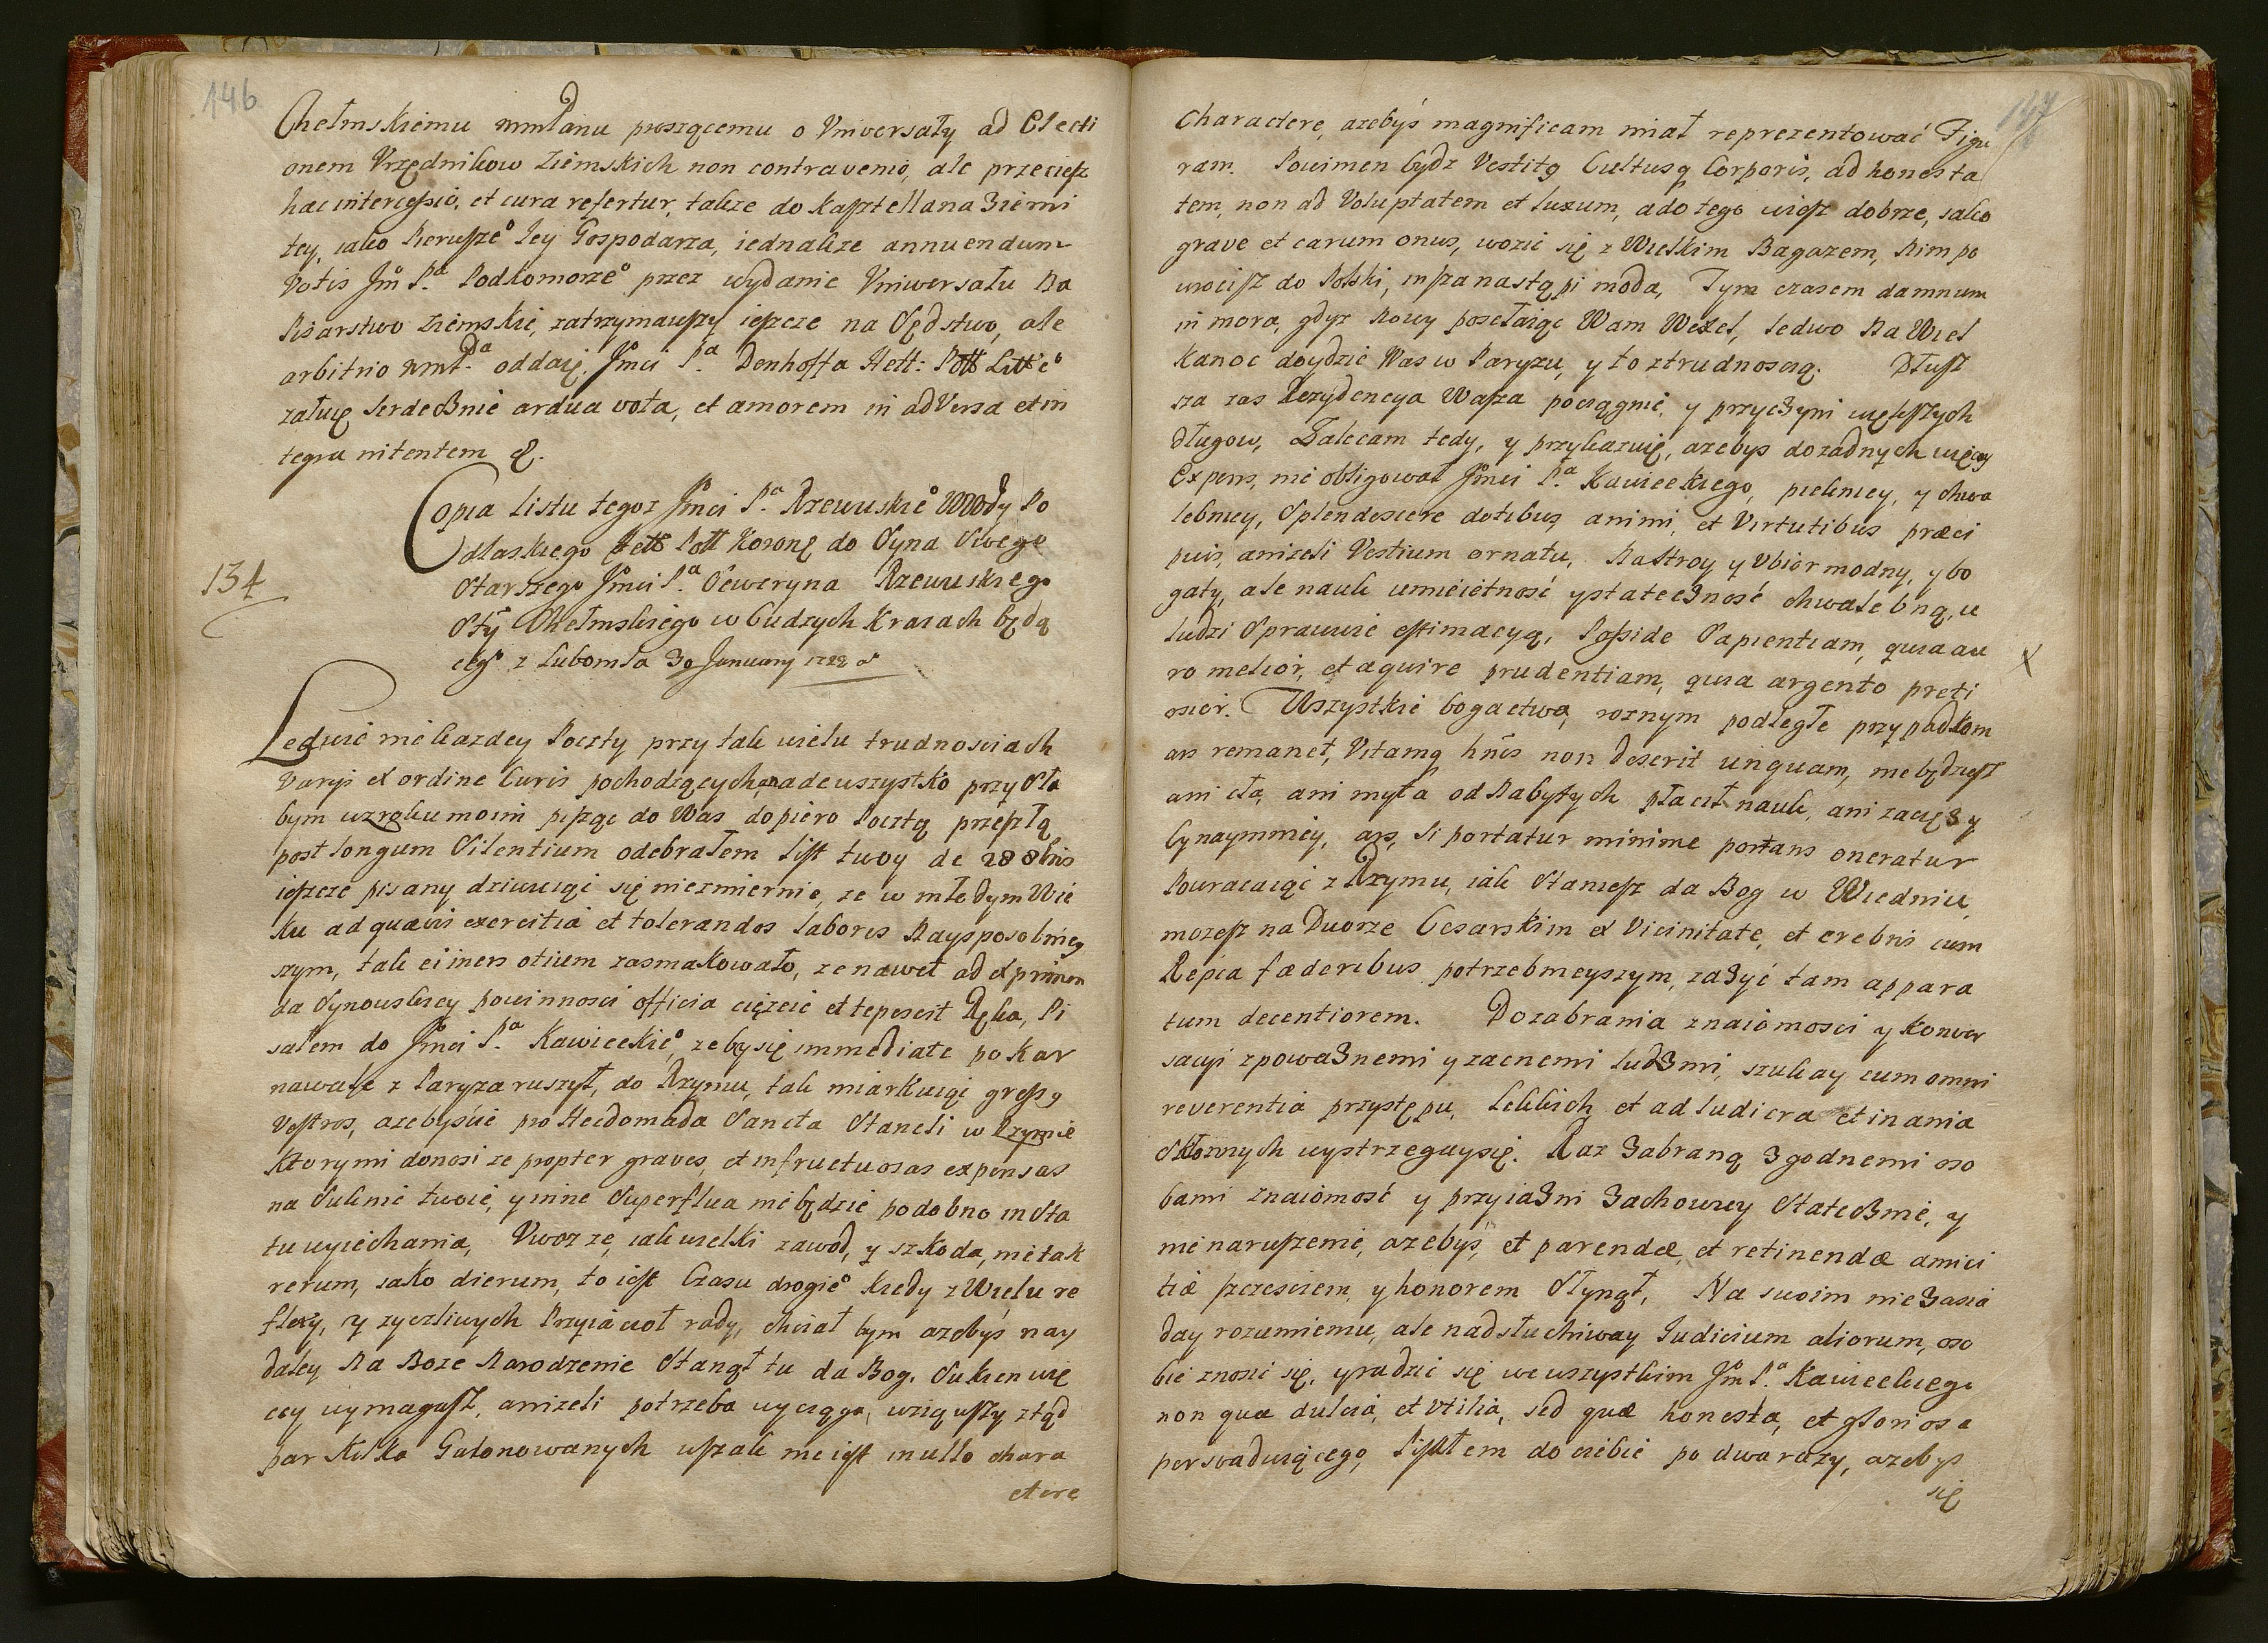 146
Chełmskiemu mmłanu proszącemu o Vniversały ad Electi
onem Vrzędnikow Ziemskich non contravenio, ale przeciesz
hac intercessio, et cura refertur, takze do kasztellana Ziemi
tey, iako pierwsze° Iey Gospodarza, iednakze annuendum
Votis Jm̊ Pa Podkomorze° przez wydanie Vniwersału Na
Pisarstwo Ziemskie, zatrzymawszy ieszcze na Sędstwo, ale
arbitrio mmPa oddaię. Jm̊ci Pa Denhoffa Hett: Pott Litt e°
załuię Serdecznie ardua vota, et amorem in adversa et in
tegra nitentem &.
134
Copia listu tegoz Jm̊ci Pa Rzewuskie° Wwody Po
dlaskiego Hett Pott Koronę do Syna Swego
Starszego Jm̊ci Pa Seweryna Rzewuskiego
Stty Chełmskiego w Cudzych Kraiach będą
ceg° z Lubomla 30 January 1722 a°
Ledwie nie kazdey Poczty przy tak wielu trudnosciach
Varys ex ordine Curis pochodzących, nadewszystko przy Sła
bym wzroku moim pisząc do Was, dopiero Pocztą przeszłą
post longum Silentium odebrałem list twoy de 28 8bris
ieszcze pisany dziwuiąc się niezmiernie, ze w młodym Wie
ku ad quævis exercitia et tolerandos labores Naysposobniey
szym, tak ei iners otium zasmakowało, ze nawet ad exprimen
da Synowskiey powinnosci officia cięzeie et tepescit Ręka, Pi
sałem do Jm̊ci Pa Kawieckie°, zeby się immediate po Kar
nawale z Paryza ruszył, do Rzymu, tak miarkuiąc gressg
Vestros, azebyscie pro Hecdomada Sancta Staneli w Rzymie
Ktory mi donosi ze propter graves, et infructuosas expensas
na Suknie twoie, y inne Superflua nie będzie podobno in Sta
tu wyiechania, Vwoz ze, iak wielki zawod, y szkoda, nie tak
rerum, iako dierum, to iest Czasu drogie° kiedy z Wielu re
flexy, y zyczliwych Przyiacioł rady, chciał bym azebys nay
daley Na Boze Narodzenie Stanął tu da Bog. Sukien wię
cey wymagasz, anizeli potrzeba wyciąga, wziąwszy ztąd
par kilka Galonowanych wszak nie iest in ullo chara
ctere
147
charactere, azebys magnificam miał reprezentować Figu
ram. Powinien bydz Vestitg Cultusq Corporis, ad honesta
tem, non ad Voluptatem et luxum, a do tego wiesz dobrze, iako
grave et carum onus, wozic się z Wielkim Bagazem, Nim po
wrocisz do Polski, insza nastąpi moda, Tym czasem damnum
in mora, gdyz Nowy posełaiąc Wam Wexel, ledwo Na Wiel
kanoc doydzie Was w Paryzu, y to z trudnoscią. Dłusz
sza zas Rezydencya Wasza pociągnie, y przyczyni większych
długow, Zalecam tedy, y przykazuię, azebys do zadnych więcey
Expens, nie obligował Jm̊ci Pa Kawieckiego, piekniey, y chwa
lebniey, Splendescere dotibus animi, et Virtutibus præci
puis, anizeli Vestium ornatu, Na Stroy y Vbior modny, y bo
gaty, ale nauk umieiętnosć y stateczność chwalebną, u
ludzi Sprawuie estimacyą, Posside Sapientiam, quia au
ro melior, et aquire prudentiam, quia argento preti
osior. Wszystkie bogactwa, roznym podległe przypadkom
ars remanet, Vitamq hnis non deserit unquam, nie będziesz
ani cła, ani myta od Nabytych płacił nauk, ani zacięzy
bynaymniey, ars, Si portatur minime portans oneratur
Powracaiąc z Rzymu, iak Staniesz da Bog w Wiedniu,
mozesz na Dworze Cesarskim ex Vicinitate, et crebris cum
Repca fæderibus potrzebnieyszym, zazyć tam appara
tum decentiorem. Do zabrania znaiomosci y konwer
sacyi z powaznemi y zacnemi ludzmi, szukay cum omni
reverentia przystępu, lekkich et ad ludicra et inania
Skłonnych wystrzegay się. Raz zabraną z godnemi oso
bami znaiomość y przyiazni zachowuy Statecznie, y
nienaruszenie, azebys, et parendæ, et retinendæ amici
tiæ szczesciem, y honorem Słynął, Na swoim nie zasia
day rozumieniu, ale nadsłuchiway Iudicium aliorum, oso
bie znosic się, y radzic się we wszystkim Jm̊ Pa Kawieckiego
non quæ dulcia, et utilia, sed quæ honesta, et gloriosa
perswaduiącego, Pisałem do ciebie po dwa razy, azebys
się